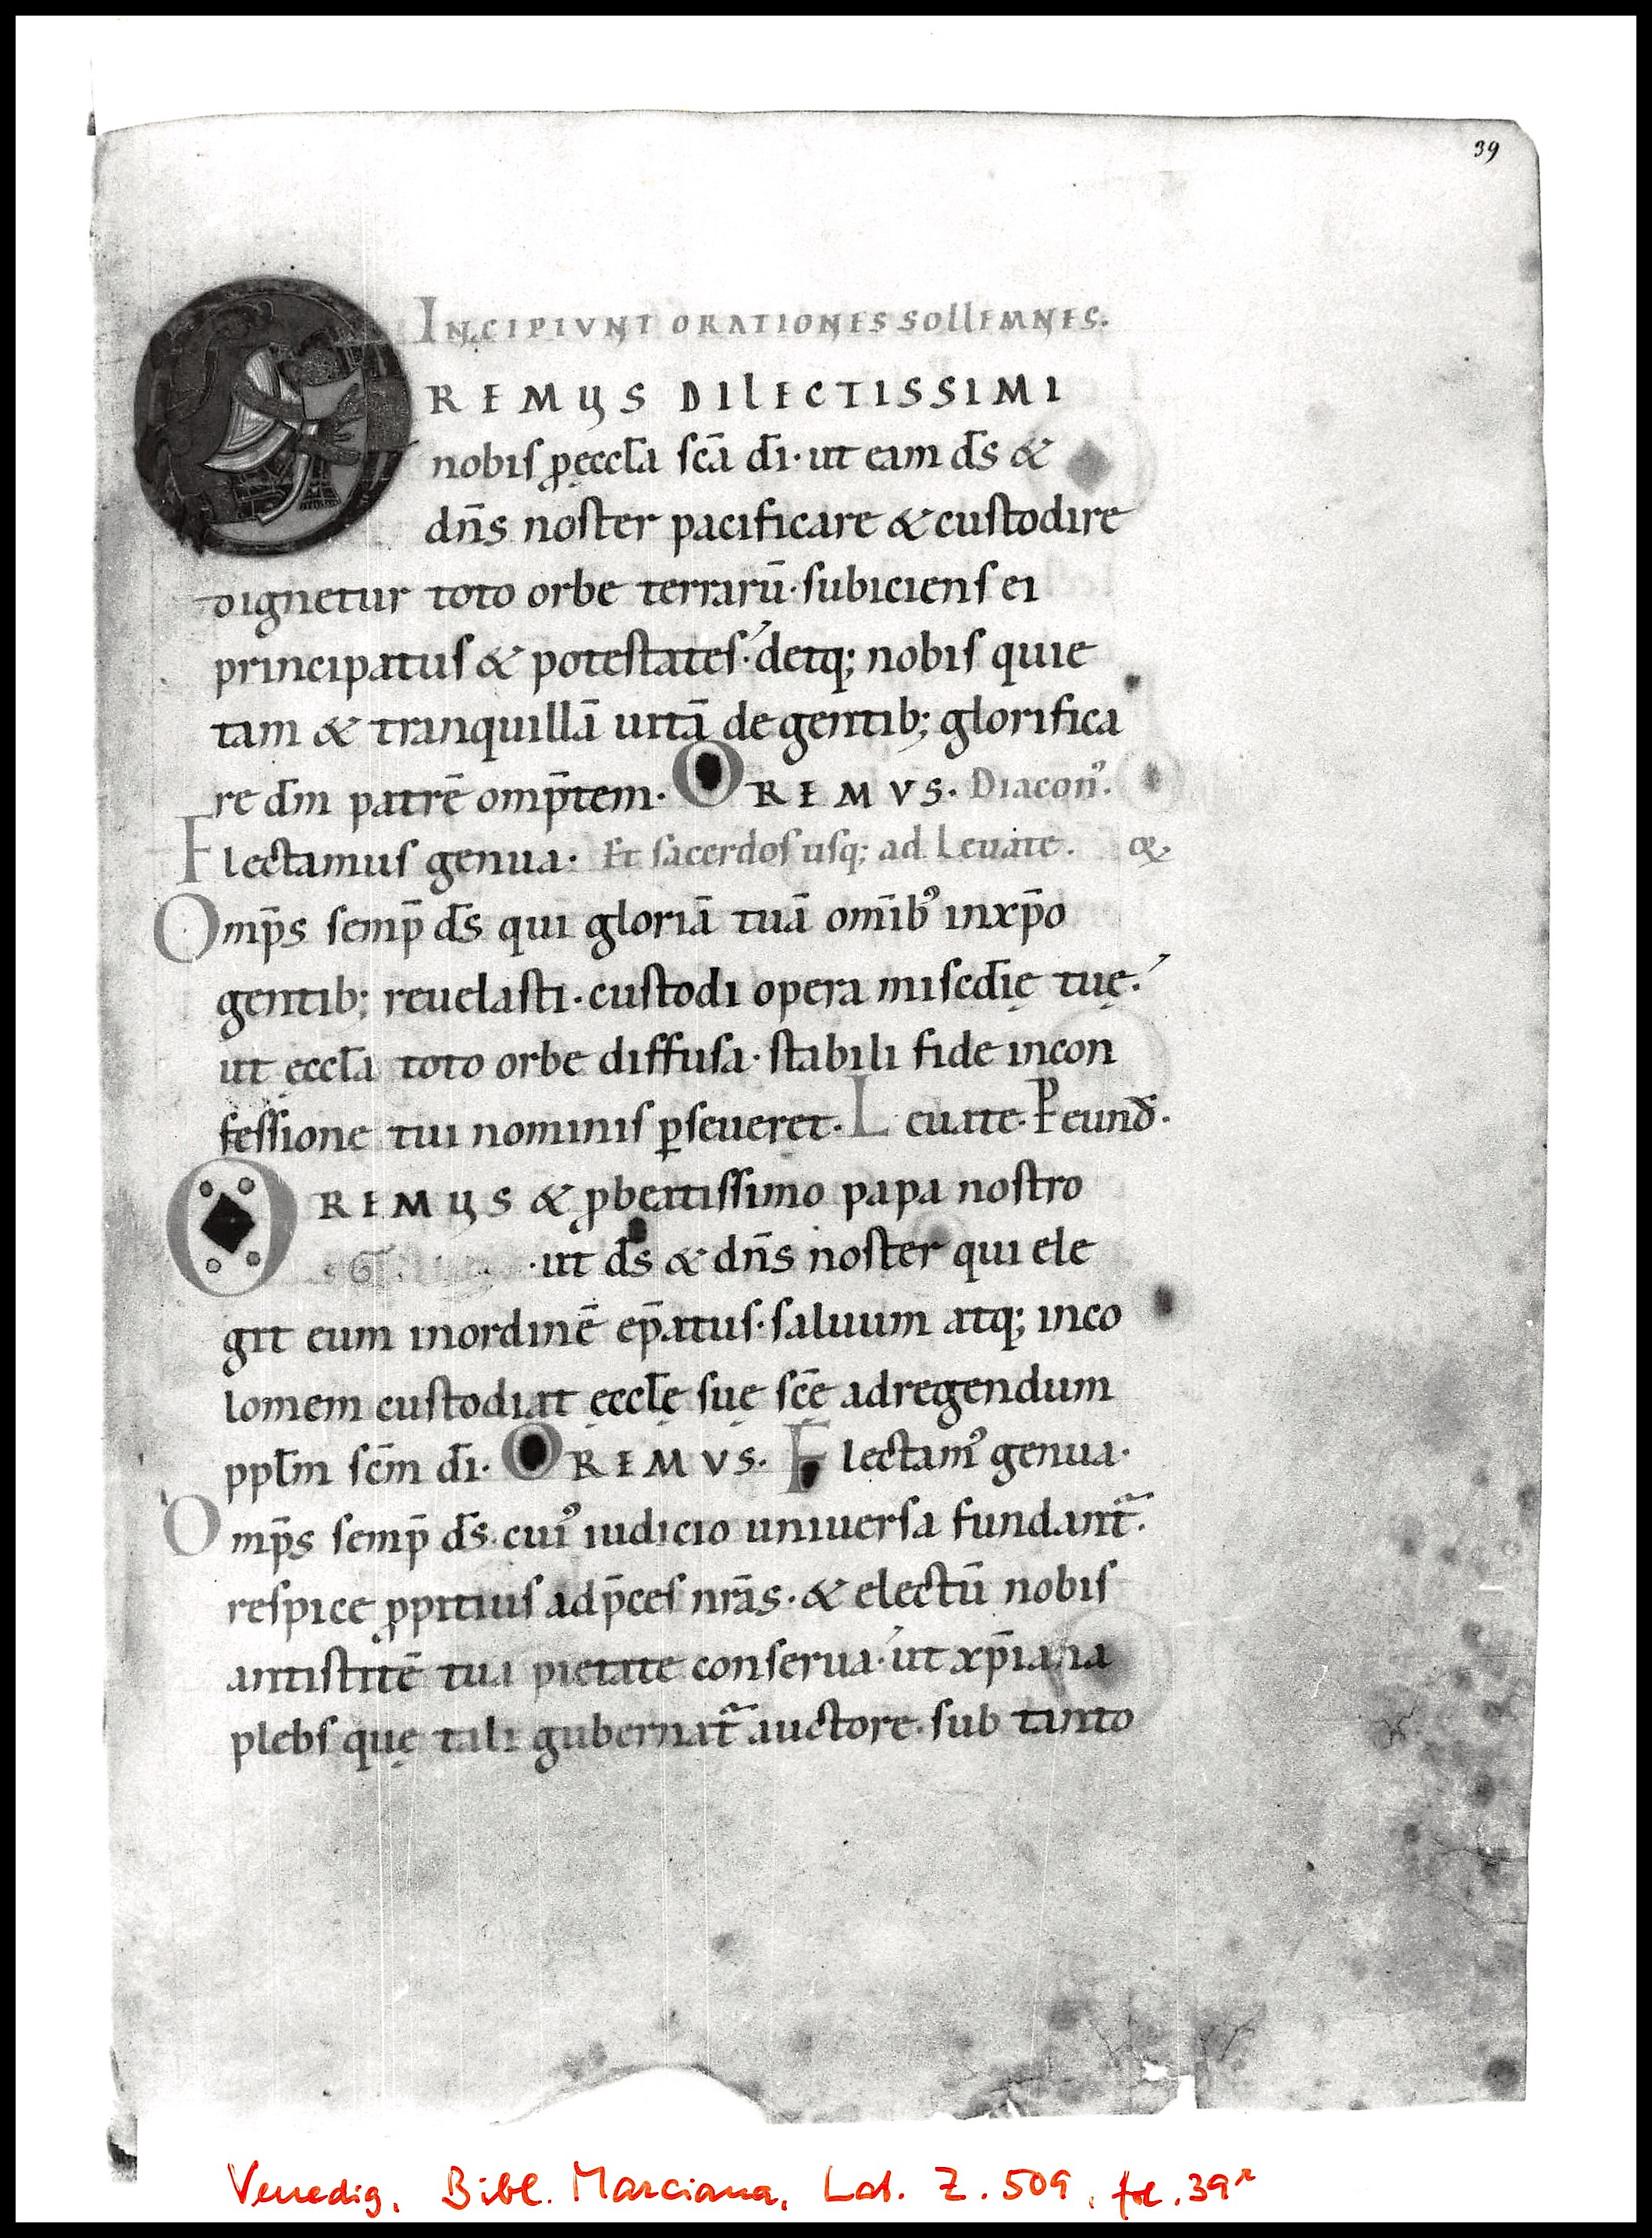 39
INCIPIVNT ORATIONES SOLLEMNES.
REMUS DILECTISSIMI
nobiſ ꝓ ęccƚa ſcā dī· ut eam dſ̄ &
dn̄s noſter pacificare & cuſtodire
dignetur toto orbe terrarū· ſubicienſ ei
principatuſ & poteſtateſ·́ detq; nobiſ quie
tam & tranquillā uitā degentib; glorifica
re dm̄ patrē omp̄tem· OREMVS. Diacon᾿.
Flectamuſ genua· Et ſacerdoſ uſq; ad Leuate. &
Omp̄s ſemp̄ dſ̄ qui gloriā tuā om̄ib᾿ inxp̄o
gentib; reuelaſti· cuſtodi opera miſcdīę tuę·́
ut ęccƚa toto orbe diffuſa· ſtabili fide incon
feſſione tui nominiſ ꝑſeueret· Leuate· P eund̄·
OREMUS & ꝓ beatiſſimo papa noſtro
· ut dſ̄ & dn̄s noſter qui ele
git eum inordinē ep̄atuſ· ſaluum atq; inco
lomem cuſtodiat ęccƚę ſuę ſcē adregendum
ppƚm ſcm̄ dī· OREMVS. Flectam᾿ genua·
Omp̄s ſemp̄ dſ̄· cui᾿ iudicio uniuerſa fundant᷑·
reſpice ꝓpitiuſ adp̄ceſ nrās· & electū nobiſ
antiſtitē tua pietate conſerua·́ ut xp̄iana
plebſ quę tali gubernat᷑ auctore· ſub tanto
Venedig, Bibl. Marciana, Lat. Z. 509, fol. 39ʳ